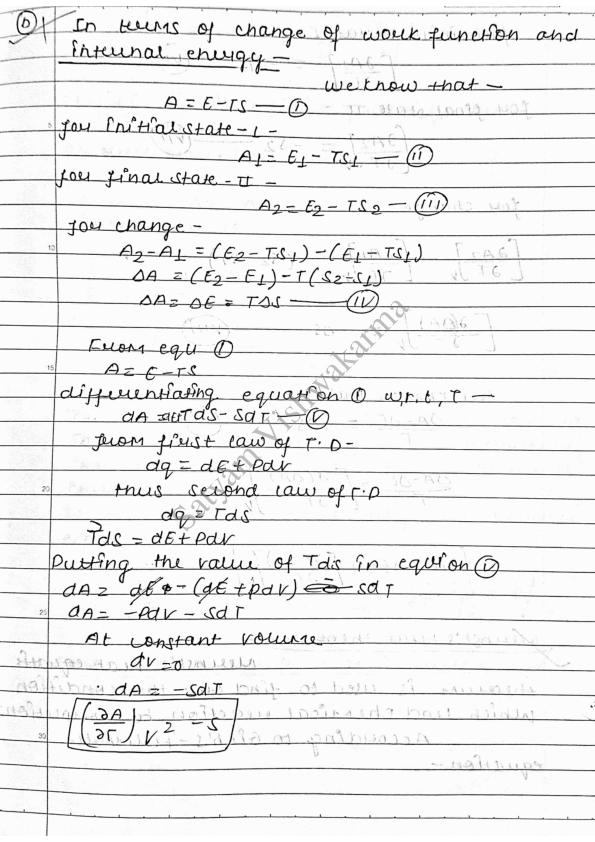 (b) In terms of change of work function and
internal energy -
we know that -
A = E - TS — (I)
for initial state - I -
A1 = E1 - TS1 — (II)
for final state - II -
A2 = E2 - TS2 — (III)
for change -
A2 - A1 = (E2 - TS1) - (E1 - TS1)
ΔA = (E2 - E1) - T(S2 - S1)
ΔA = ΔE = TΔS — (IV)
From equ (I)
A = E - TS
differentiating equation (I) w.r.t, T -
dA = dE - TdS - SdT — (V)
from first law of T.D -
dq = dE + Pdv
thus second law of T.D
dq = Tds
Tds = dE + Pdv
Putting the value of Tds in equion (V)
dA = dE - (dE + pdv) - SdT
dA = -Pdv - SdT
At constant volume
dv = 0
∴ dA = -SdT
(∂A/∂T)v = -S
Satyam Vishwakarma